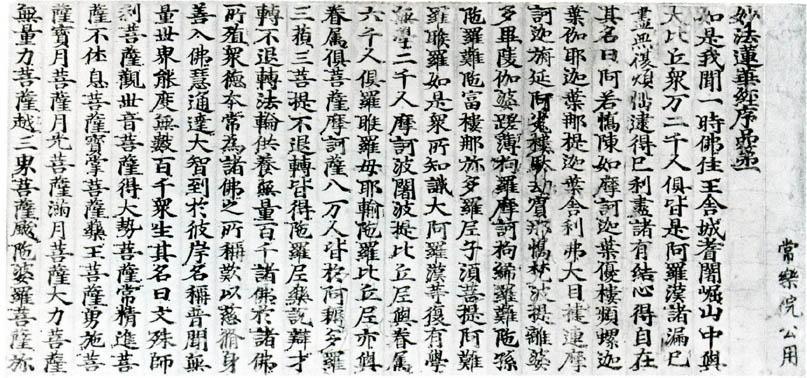 常樂院公用
妙法蓮華經序品第一
如是我聞一時佛住王舍城耆闍崛山中與
大比丘衆万二千人俱皆是阿羅漢諸漏已
盡無復煩惱逮得已利盡諸有結心得自在
其名曰阿若憍陳如摩訶迦葉優樓頻螺迦
葉伽耶迦葉那提迦葉舍利弗大目揵連摩
訶迦旃延阿㝹樓馱劫賓那憍梵波提離婆
多畢陵伽婆蹉薄拘羅摩訶拘絺羅難陁孫
陁羅難陁富樓那弥多羅尼子須菩提阿難
羅睺羅如是衆所知識大阿羅漢等復有學
無學二千人摩訶波闍波提比丘尼與眷属
六千人俱羅睺羅母耶輸陁羅比丘尼亦與
眷属俱菩薩摩訶薩八万人皆於阿耨多羅
三藐三菩提不退轉皆得陁羅尼樂說辯才
轉不退轉法輪供養無量百千諸佛於諸佛
所殖衆德本常為諸佛之所稱歎以慈脩身
善入佛慧通達大智到於彼岸名稱普聞無
量世界能度無數百千衆生其名曰文殊師
利菩薩觀世音菩薩得大勢菩薩常精進菩
薩不休息菩薩寶掌菩薩藥王菩薩勇施菩
薩寶月菩薩月光菩薩滿月菩薩大力菩薩
無量力菩薩越三界菩薩颰陁婆羅菩薩弥